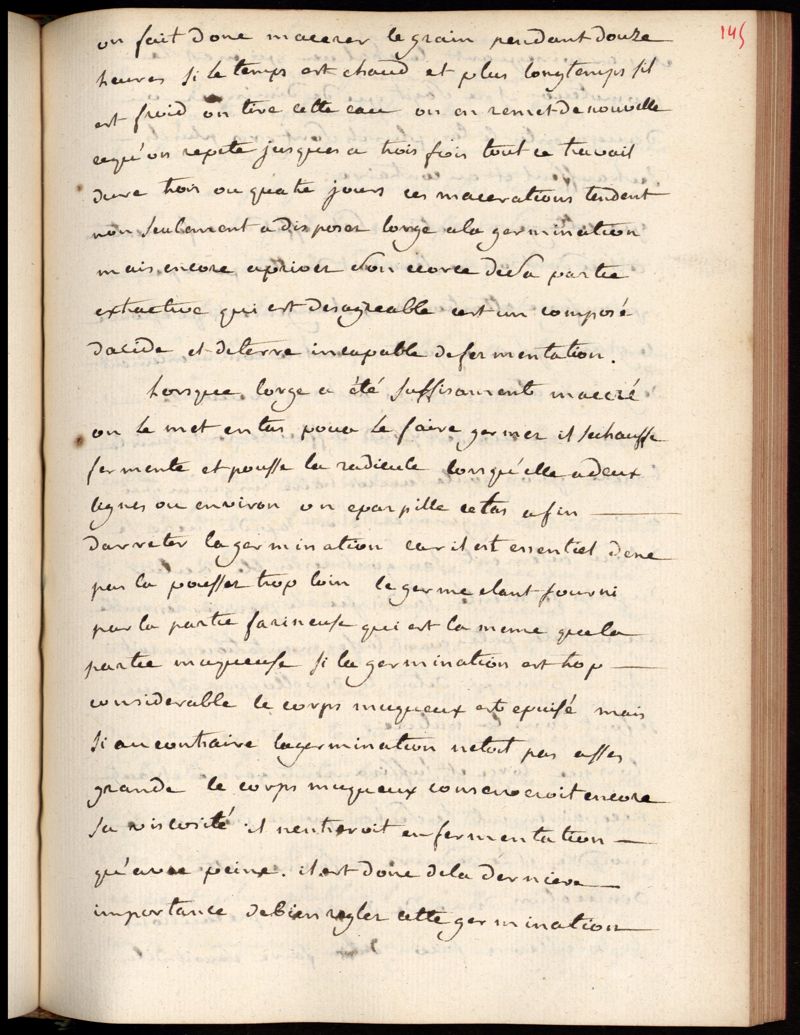 145
on fait donc macerer le grain pendant douze
heures si le temps est chaud et plus longtemps sil
est froid on tire cette eau on en remet de nouvelle
cequ'on repete jusques a trois fois tout ce travail
dure trois ou quatre jours ces macerations tendent
non seulement a disposer lorge ala germination
mais encore apriver son ecorce de sa partie
extractive qui est desagreable cest un composé
dacide et deterre incapable defermentation.
Lorsque lorge a été suffisament maceré
on le met entas pour le faire germer il sechauffe
fermente et pousse la radicule lorsqu'elle adeux
lignes ou environ on eparpille cetas afin
darreter lagermination car il est essentiel dene
pas la pousser trop loin le germe etant fourni
par la partie farineuse qui est la meme quela
partie muqueuse si la germination est trop
considerable le corps muqueux est epuisé mais
si au contraire lagermination netoit pas asses
grande le corps muqueux conserveroit encore
sa viscosité il nentreroit enfermentation
qu'avec peine. il est donc dela derniere
importance debien regler cette germination